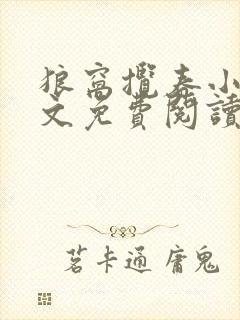 狼窩攬春小
文免費閱讀
茗卡通 庸鬼